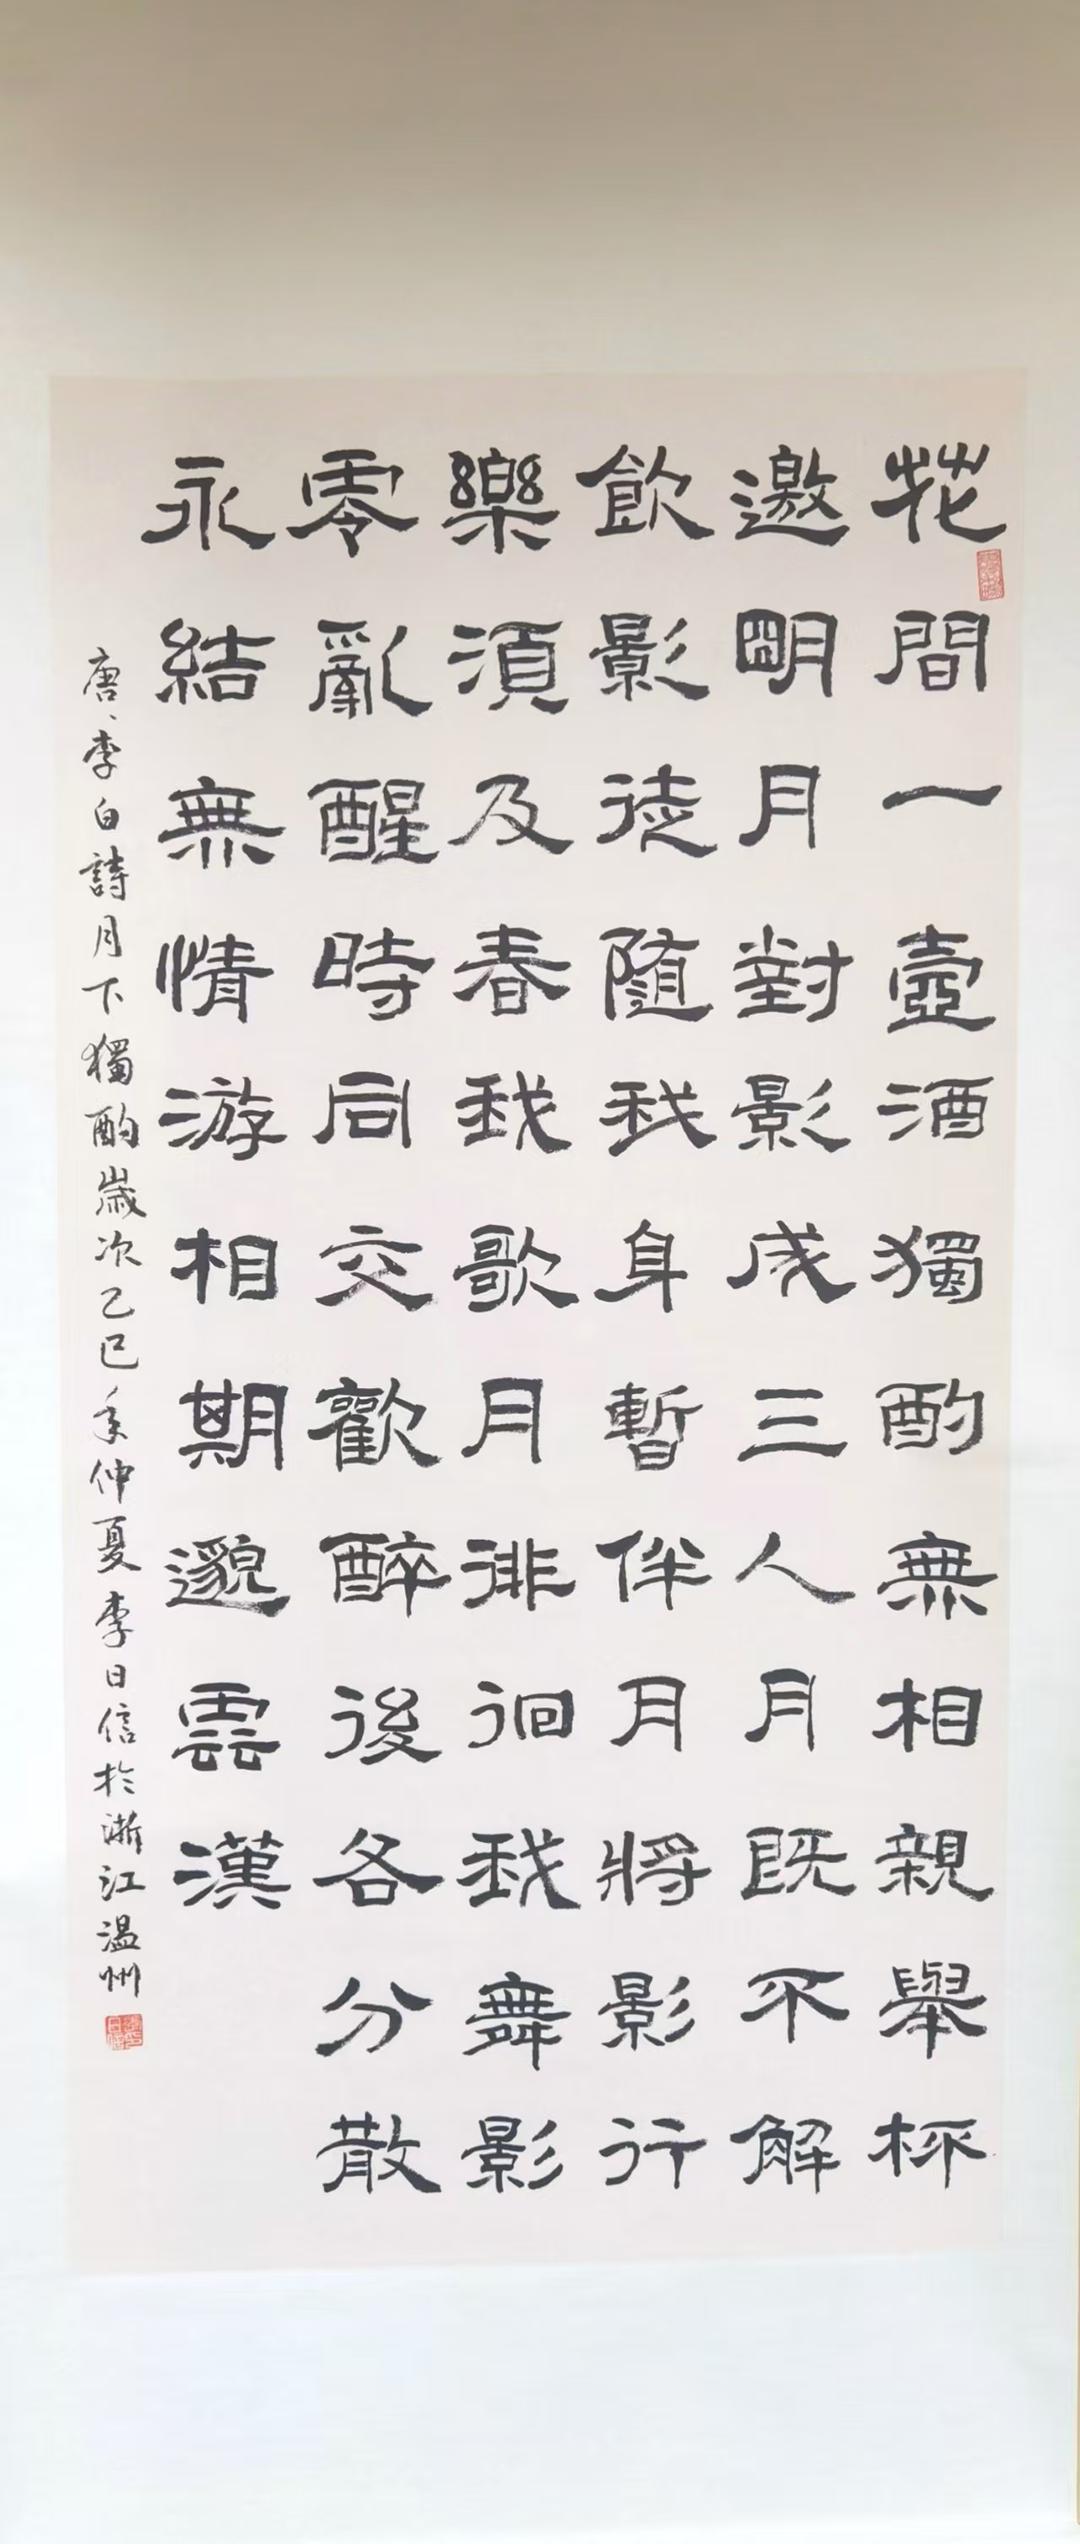 花間一壺酒獨酌無相親舉杯
邀明月對影成三人月既不解
飲影徒隨我身暫伴月將影行
樂須及春我歌月徘徊我舞影
零亂醒時同交歡醉後各分散
永結無情游相期邈雲漢
唐、李白詩月下獨酌歲次乙巳年仲夏李日信於浙江溫州